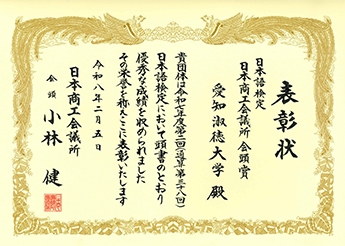 表彰状
日本語検定
日本商工会議所 会頭賞
愛知淑徳大学 殿
貴団体は令和七年度第二回(通算第三十八回)
日本語検定において頭書のとおり
優秀な成績を収められました
その栄誉を称えここに表彰いたします
令和八年二月五日
日本商工会議所
会頭 小林 健